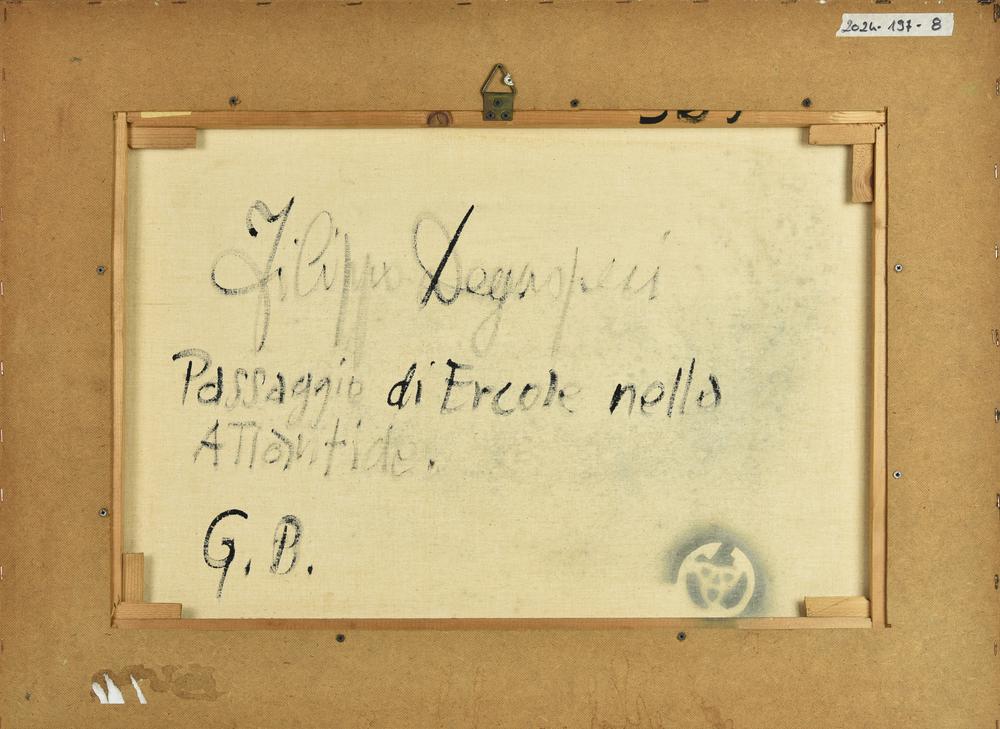 2024-197-8
Filippo Degasperi
Passaggio di Ercole nella
Atlantide.
G. B.